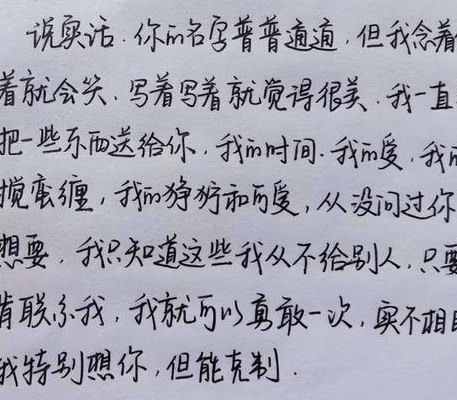 说实话.你的名字普普通通,但我念着
着就会笑、写着写着就觉得很美.我一直
把一些东西送给你,我的时间.我的爱,我
搅蛮缠,我的狰狞和可爱,从没问过你
想要.我只知道这些我从不给别人,只要
肯联系我,我就可以勇敢一次,实不相
我特别想你,但能克制.